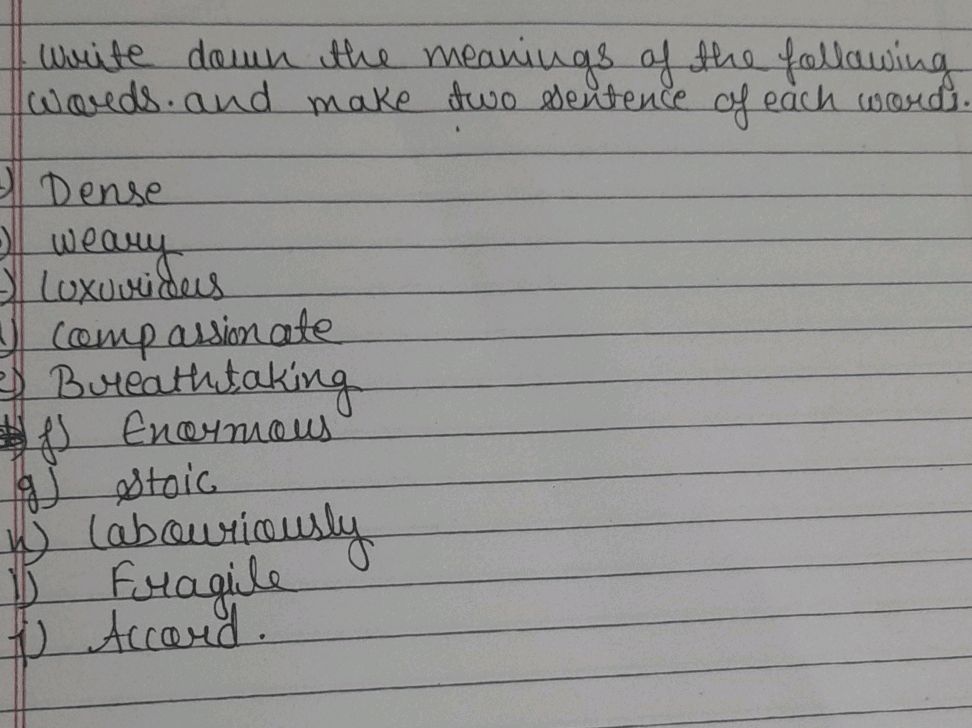 Write down the meanings of the following
words. and make two sentence of each words.
Dense
weary
Luxurious
Compassionate
e) Breathtaking
f) Enormous
g) Stoic
h) Labouriously
i) Fragile
j) Accord.